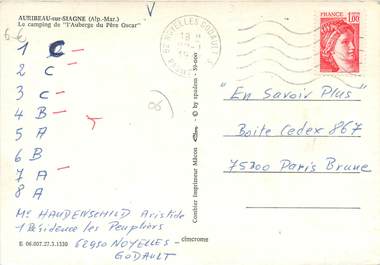 AURIBEAU-sur-SIAGNE (Alp.-Mar.)
Le camping de "l'Auberge du Père Oscar"
6€
1 C
2 C
3 C
4 B
5 A
6 B
7 A
8 A
Mr HAUDENSCHILD Aristide
1 Résidence les Peupliers
62950 NOYELLES-
GODAULT
E 06.007.27.3.1330
cimcrome
Combier Imprimeur Mâcon
© by spadem
62 NOYELLES GODAULT
18 H
REPUBLIQUE FRANCAISE
1,00
"En Savoir Plus"
Boite Cedex 867
75300 Paris Brune